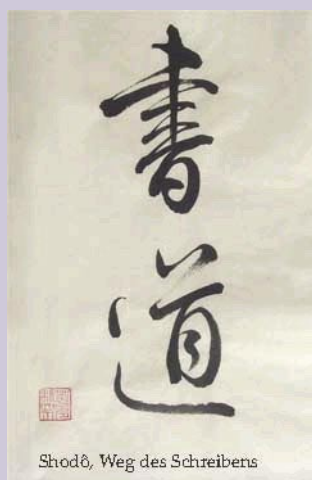 書道
Shodô, Weg des Schreibens